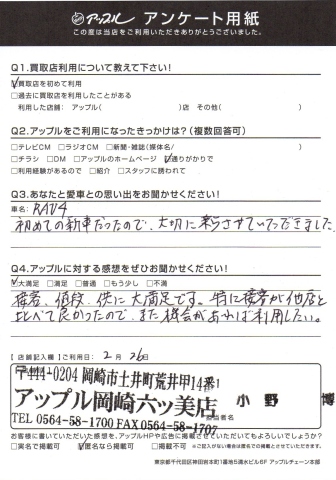 アップル アンケート用紙
この度は当店をご利用いただきありがとうございました。
Q1.買取店利用について教えて下さい!
☑買取店を初めて利用
□過去に買取店を利用したことがある
利用した店舗: アップル( )店 その他( )
Q2.アップルをご利用になったきっかけは?(複数回答可)
□テレビCM □ラジオCM □新聞・雑誌(媒体名/ )
□チラシ □DM □アップルのホームページ ☑通りがかりで
□利用経験があるので □紹介 □スタッフに誘われて
Q3.あなたと愛車との思い出をお聞かせください!
車名: RAV4
初めての新車だったので、大切に乗らさせていただきました
Q4.アップルに対する感想をぜひお聞かせください!
☑大満足 □満足 □普通 □もう少し □不満
接客、値段、供に大満足です。特に接客が他店と
比べて良かったので、また機会があれば利用したい。
【店舗記入欄】ご利用日: 2月 26日
〒444-0204 岡崎市土井町荒井甲14番1
アップル岡崎六ッ美店 小野 博
TEL 0564-58-1700 FAX 0564-58-1707
お客様に書いていただいた感想を、アップルHPや広告に掲載させていただいてもよろしいでしょうか?
□実名で掲載可 ☑匿名なら掲載可 □掲載不可
東京都千代田区神田岩本町1番地5清水ビル6F アップルチェーン本部